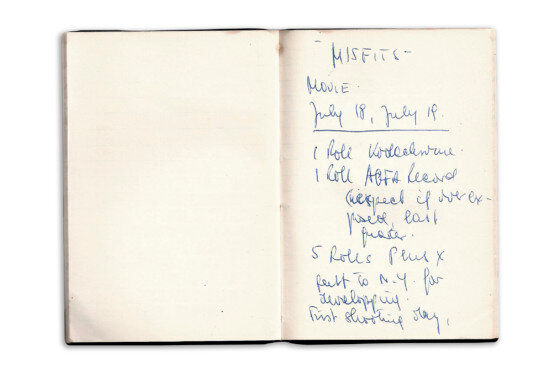 - MISFITS -
MOVIE.
July 18, July 19.
1 Roll Kodachrome.
1 Roll AGFA Record
inspect if over ex-
posed, last
5 Rolls Plus X
sent to N.Y. for
developing.
First shooting day,